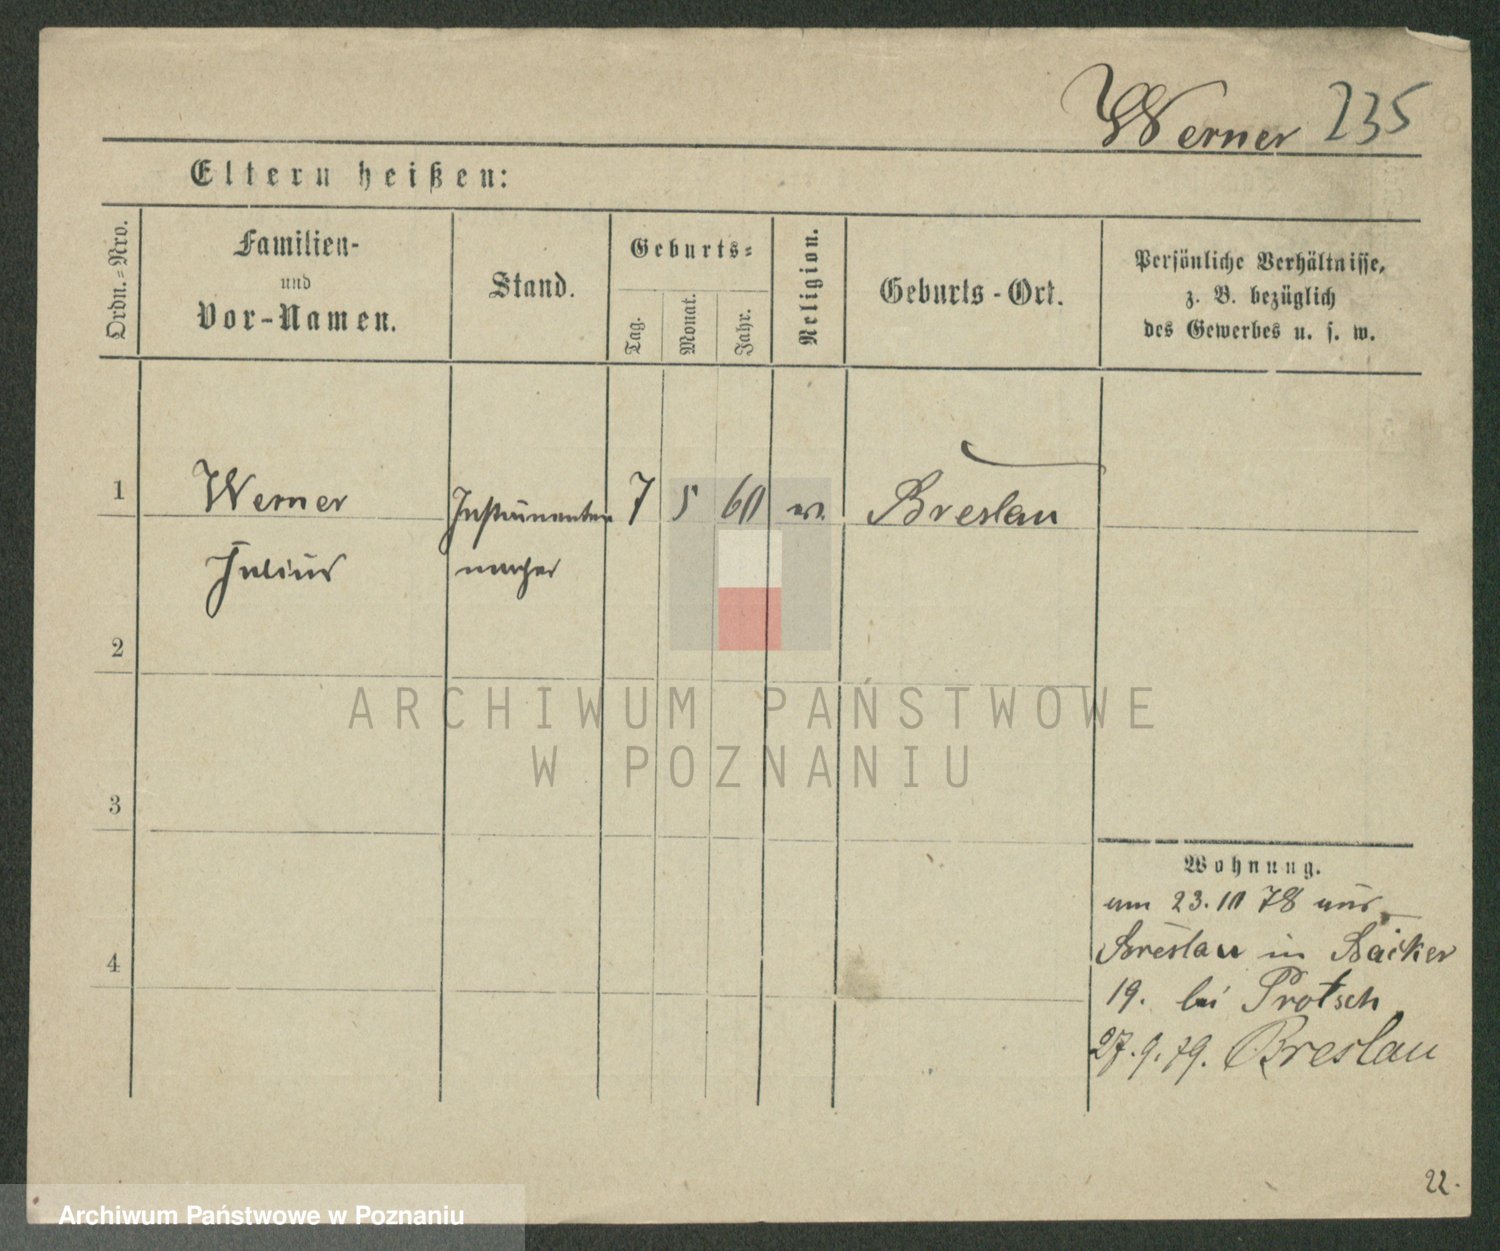 Werner 235
Eltern heißen:
Ordn.-Nro.
Familien-
und
Vor-Namen.
Stand.
Geburts-
Tag.
Monat.
Jahr.
Religion.
Geburts-Ort.
Persönliche Verhältnisse,
z. B. bezüglich
des Gewerbes u. s. w.
1 Werner Instrumenten 7 5 60 ev. Breslau
Julius macher
2
3
4
ARCHIWUM PAŃSTWOWE
W POZNANIU
Wohnung.
am 23. 10 78 aus
Breslau in Bäcker
19. bei Protsch
27. 9. 79. Breslau
22.
Archiwum Państwowe w Poznaniu